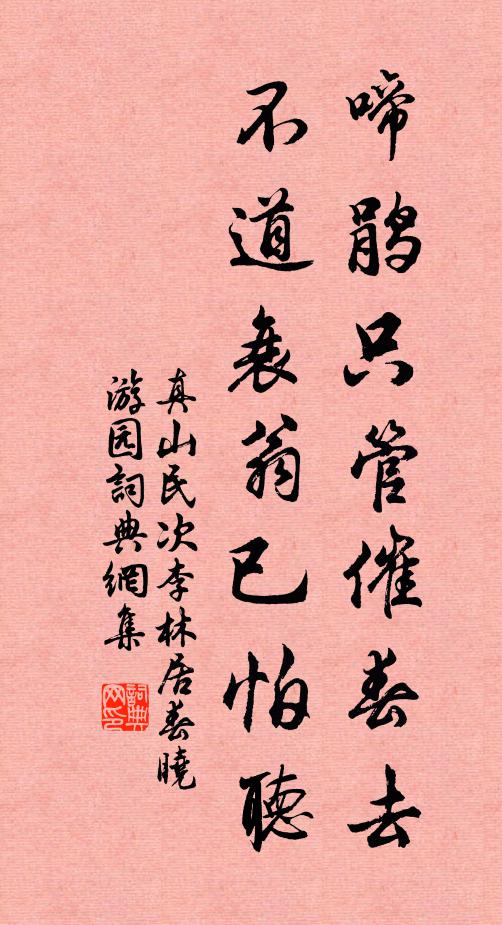 啼鹃只管催春去
不道衰翁已怕聽
真山民次李林居春曉
游园詞典網集
詞典网印